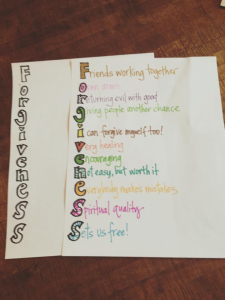 Forgiveness
Friends working together
O
Returning evil with good
Giving people another chance
I can forgive myself too!
Very healing
Encouraging
Not easy, but worth it
Everybody makes mistakes
Spiritual quality
Sets us free!